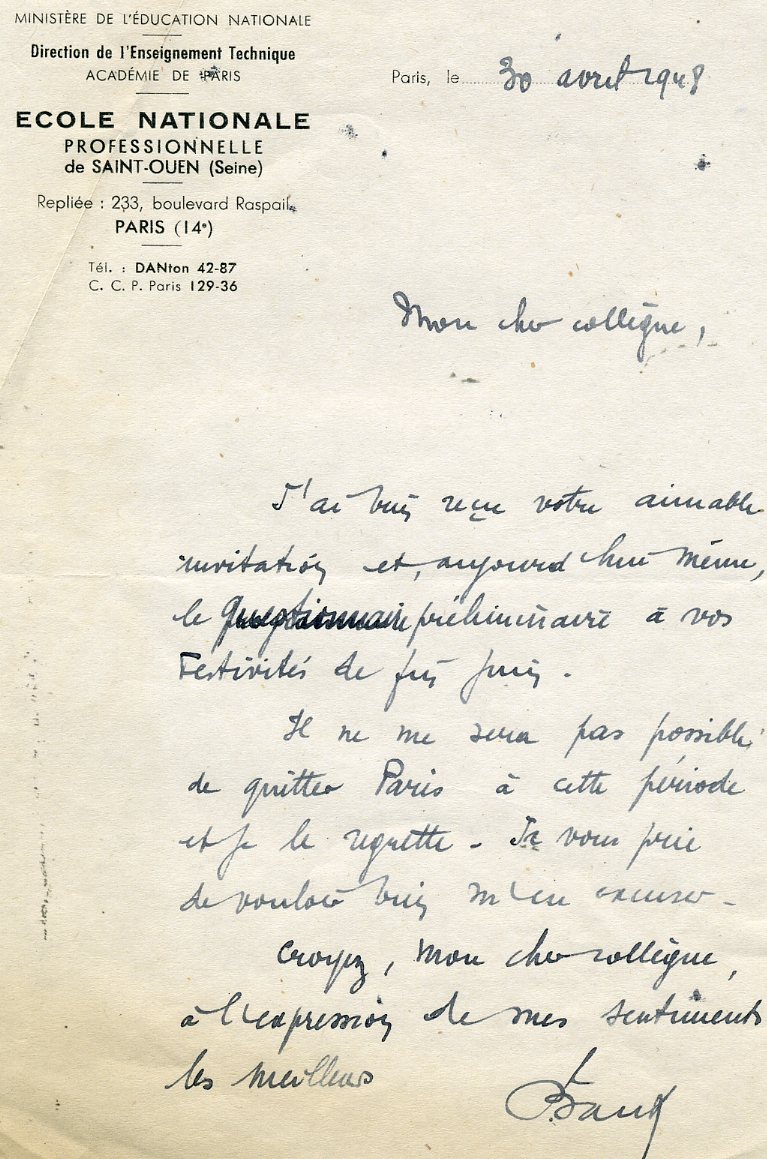 MINISTÈRE DE L'ÉDUCATION NATIONALE
Direction de l'Enseignement Technique
ACADÉMIE DE PARIS
ECOLE NATIONALE
PROFESSIONNELLE
de SAINT-OUEN (Seine)
Repliée : 233, boulevard Raspail
PARIS (14e)
Tél. : DANton 42-87
C. C. P. Paris 129-36
Paris, le 30 avril 1948
Mon cher collègue,
J'ai bien reçu votre aimable
invitation et, aujourd'hui même,
le questionnaire préliminaire à vos
Festivités de fin juin.
Il ne me sera pas possible
de quitter Paris à cette période
et je le regrette - Je vous prie
de vouloir bien m'en excuser -
Croyez, mon cher collègue,
à l'expression de mes sentiments
les meilleurs